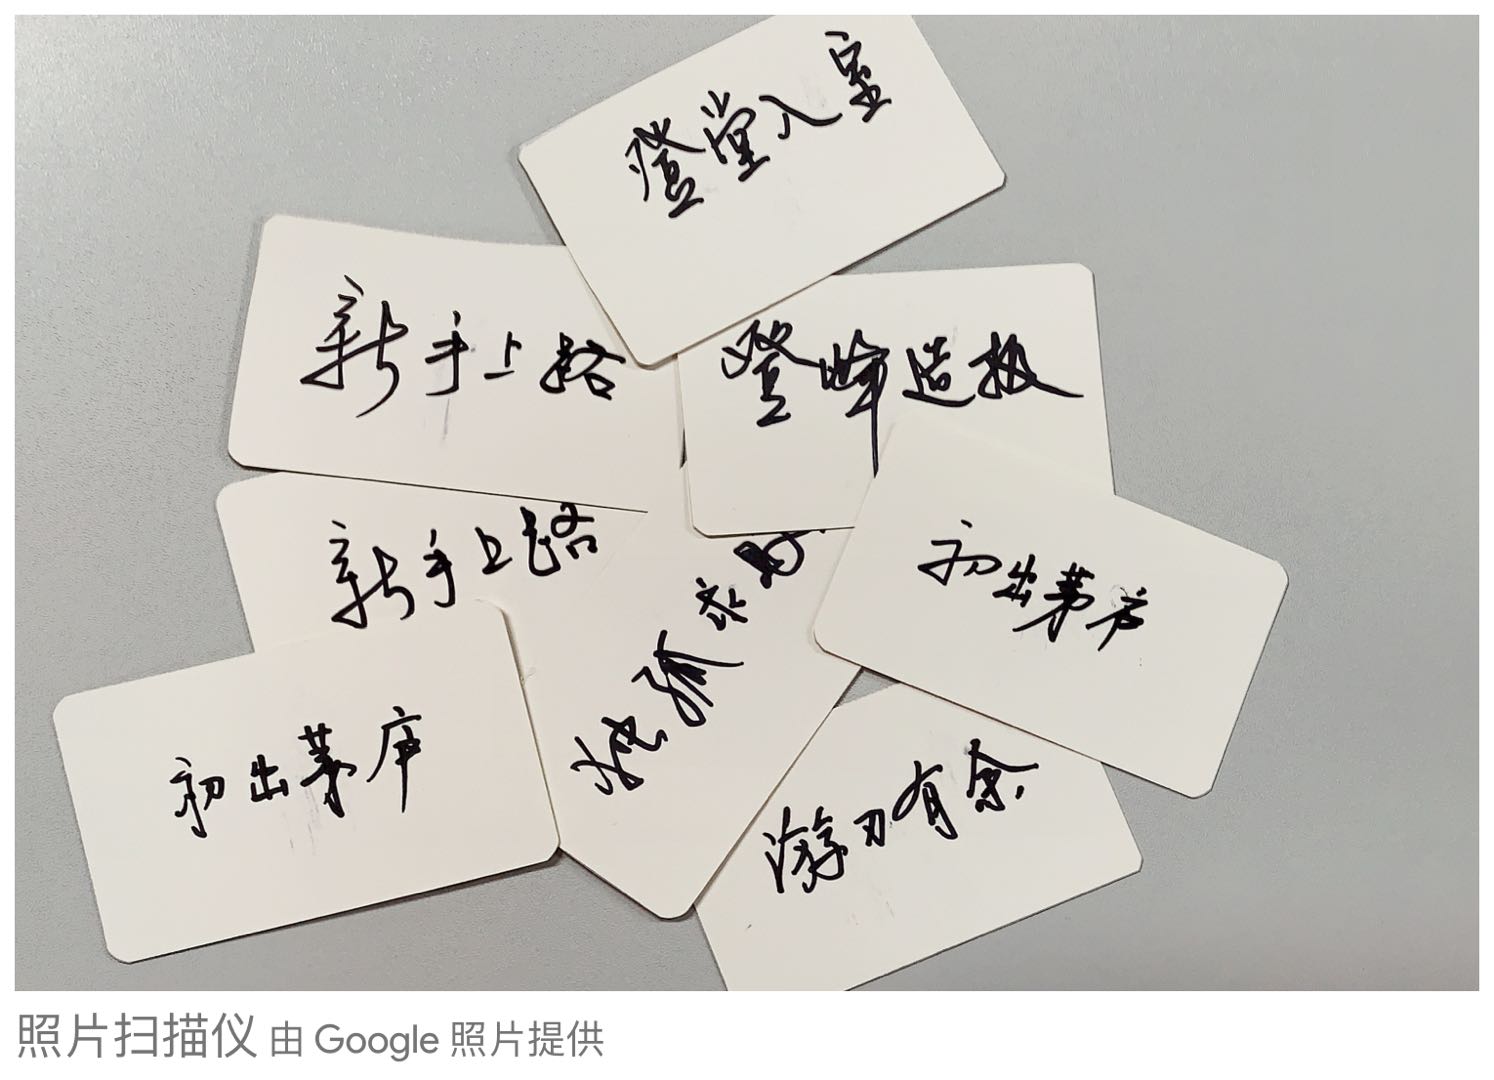 登堂入室
新手上路
登峰造极
新手上路
初出茅庐
独孤求
初出茅庐
游刃有余
照片扫描仪 由 Google 照片提供